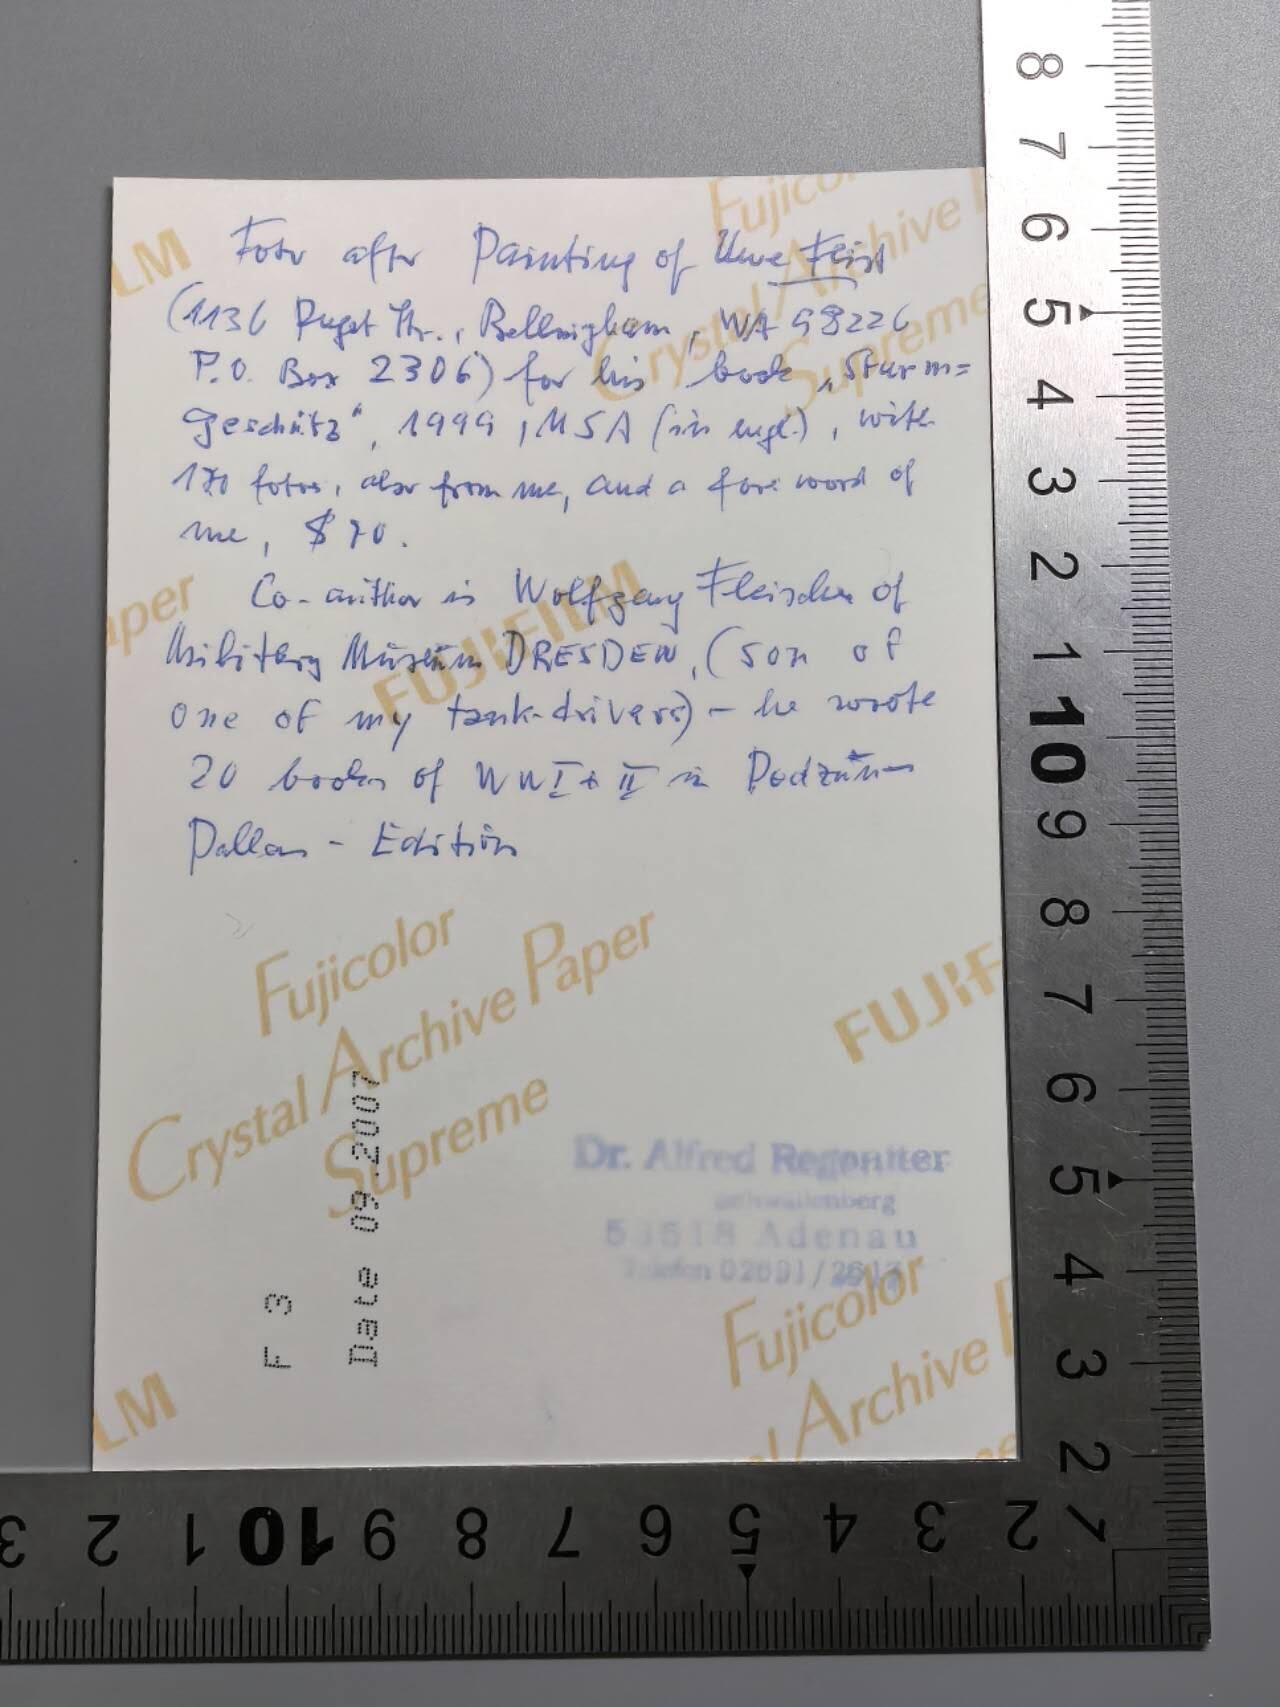 Foto after Painting of Uwe Feist
(1136 Puget Str., Bellingham, WA 98226
P.O. Box 2306) for his book „Sturm=
geschütz", 1999, USA (in engl.), with
170 fotos, also from me, and a foreword of
me, $ 70.
Co-author is Wolfgang Fleischer of
Military Museum DRESDEN, (son of
one of my tank-drivers) - he wrote
20 books of WW I + II in Podzun-
Pallas - Edition
Fujicolor
Crystal Archive Paper
Supreme
FUJIFILM
F 3
Date 09.2007
Dr. Alfred Regeniter
53518 Adenau
Telefon 02691/
Fujicolor
8
7
6
5
4
3
2
1
10
9
8
7
6
5
4
3
2
3 2 1 10 9 8 7 6 5 4 3 2 1